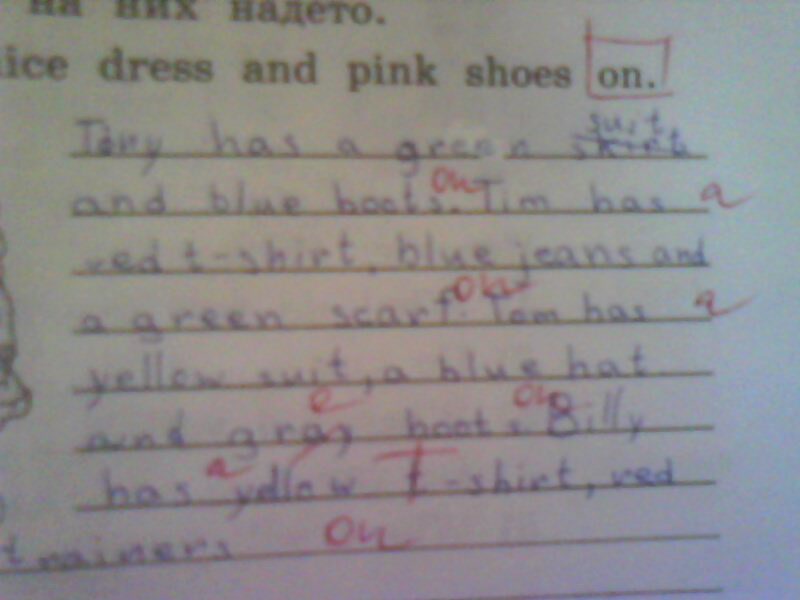 на них надето.
nice dress and pink shoes on.
suit
Tony has a green skirt
and blue boots. on Tim has a
red t-shirt, blue jeans and
a green scarf. on Tom has a
yellow suit, a blue hat
and gray e boots on Billy
has a yellow T-shirt, red
trainers on